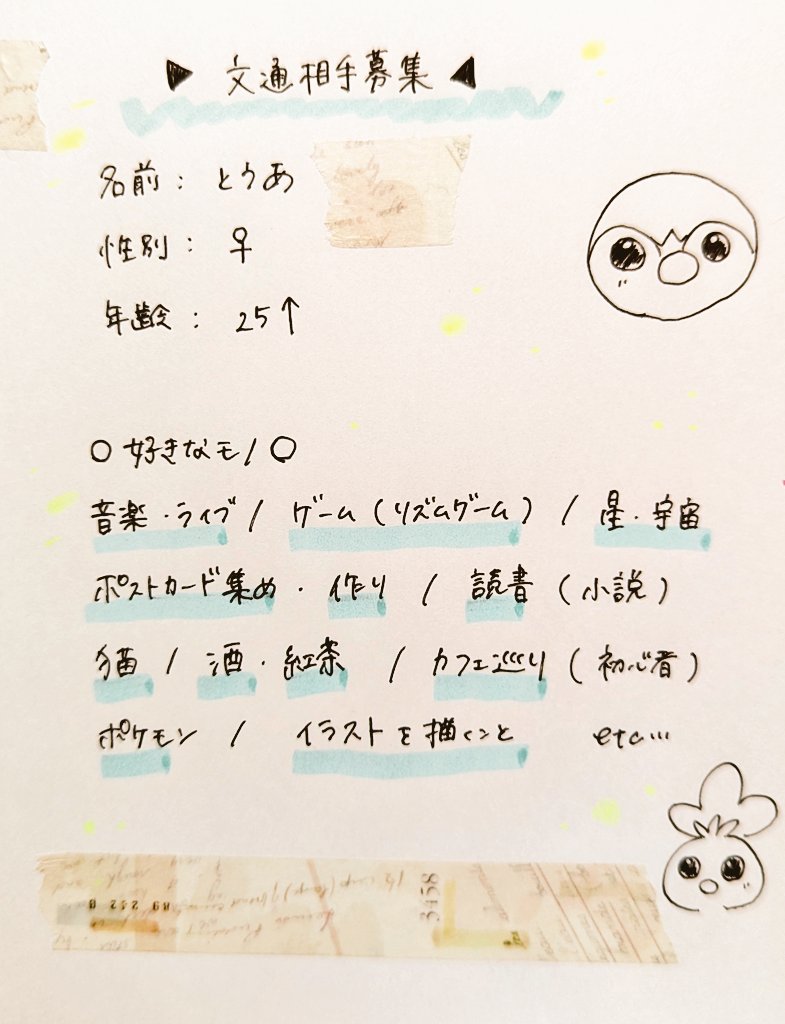 ▶ 文通相手募集 ◀
名前: とうあ
性別: ♀
年齢: 25↑
○ 好きなモノ ○
音楽・ライブ / ゲーム(リズムゲーム) / 星・宇宙
ポストカード集め・作り / 読書(小説)
猫 / 酒・紅茶 / カフェ巡り(初心者)
ポケモン / イラストを描くこと etc…
3458